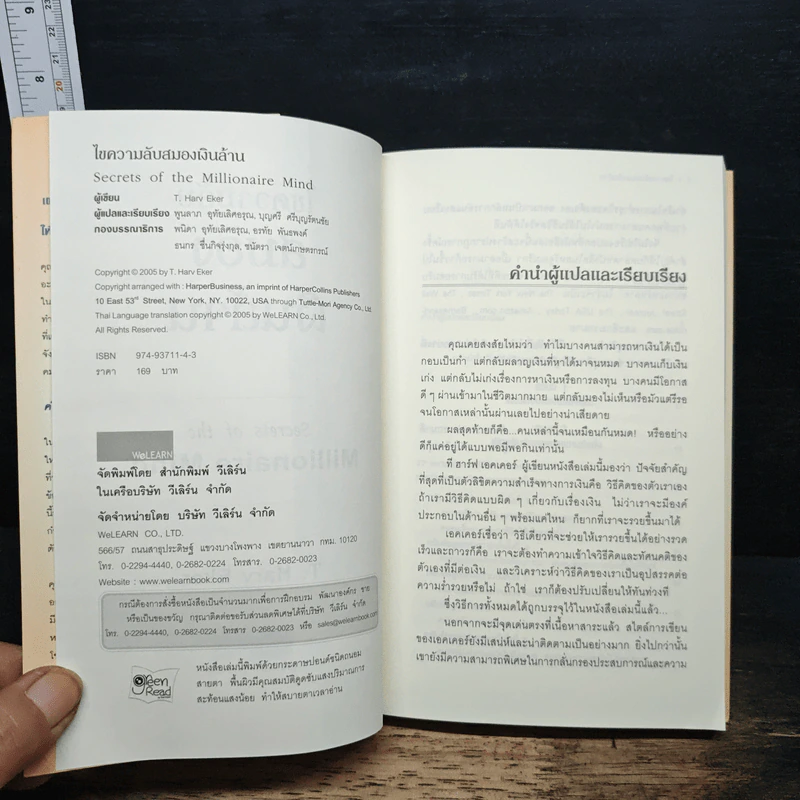 ไขความลับสมองเงินล้าน
Secrets of the Millionaire Mind
ผู้เขียน T. Harv Eker
ผู้แปลและเรียบเรียง พูนลาภ อุทัยเลิศอรุณ, บุญศรี ศรีบุญรัตนชัย
กองบรรณาธิการ พนิดา อุทัยเลิศอรุณ, อรทัย พันธพงค์
ธนกร ชื่นกิจรุ่งกุล, ชนัดรา เจตน์เกษตรกรณ์
Copyright © 2005 by T. Harv Eker
Copyright arranged with : HarperBusiness, an imprint of HarperCollins Publishers
10 East 53rd Street, New York, NY. 10022, USA through Tuttle-Mori Agency Co., Ltd.
Thai Language translation copyright © 2005 by WeLEARN Co., Ltd.
All Rights Reserved.
ISBN 974-93711-4-3
ราคา 169 บาท
WeLEARN
จัดพิมพ์โดย สำนักพิมพ์ วีเลิร์น
ในเครือบริษัท วีเลิร์น จำกัด
จัดจำหน่ายโดย บริษัท วีเลิร์น จำกัด
WeLEARN CO., LTD.
566/57 ถนนสาธุประดิษฐ์ แขวงบางโพงพาง เขตยานนาวา กทม. 10120
โทร. 0-2294-4440, 0-2682-0224 โทรสาร. 0-2682-0023
Website : www.welearnbook.com
กรณีต้องการสั่งซื้อหนังสือเป็นจำนวนมากเพื่อการฝึกอบรม พัฒนาองค์กร ขาย
หรือเป็นของขวัญ กรุณาติดต่อขอรับส่วนลดพิเศษได้ที่บริษัท วีเลิร์น จำกัด
โทร. 0-2294-4440, 0-2682-0224 โทรสาร 0-2682-0023 หรือ sales@welearnbook.com
Green Read
หนังสือเล่มนี้พิมพ์ด้วยกระดาษปอนด์ชนิดถนอม
สายตา พื้นผิวมีคุณสมบัติดูดซับแสงปริมาณการ
สะท้อนแสงน้อย ทำให้สบายตาเวลาอ่าน
คำนำผู้แปลและเรียบเรียง
คุณเคยสงสัยไหมว่า ทำไมบางคนสามารถหาเงินได้เป็น
กอบเป็นกำ แต่กลับผลาญเงินที่หาได้มาจนหมด บางคนเก็บเงิน
เก่ง แต่กลับไม่เก่งเรื่องการหาเงินหรือการลงทุน บางคนมีโอกาส
ดี ๆ ผ่านเข้ามาในชีวิตมากมาย แต่กลับมองไม่เห็นหรือมัวแต่รีรอ
จนโอกาสเหล่านั้นผ่านเลยไปอย่างน่าเสียดาย
ผลสุดท้ายก็คือ...คนเหล่านี้จนเหมือนกันหมด! หรืออย่าง
ดีก็แค่อยู่ได้แบบพอมีพอกินเท่านั้น
ที ฮาร์ฟ เอคเคอร์ ผู้เขียนหนังสือเล่มนี้มองว่า ปัจจัยสำคัญ
ที่สุดที่เป็นตัวลิขิตความสำเร็จทางการเงินคือ วิธีคิดของตัวเราเอง
ถ้าเรามีวิธีคิดแบบผิด ๆ เกี่ยวกับเรื่องเงิน ไม่ว่าเราจะมีองค์
ประกอบในด้านอื่น ๆ พร้อมแค่ไหน ก็ยากที่เราจะรวยขึ้นมาได้
เอคเคอร์เชื่อว่า วิธีเดียวที่จะช่วยให้เรารวยขึ้นได้อย่างรวด
เร็วและถาวรก็คือ เราจะต้องทำความเข้าใจวิธีคิดและทัศนคติของ
ตัวเองที่มีต่อเงิน และวิเคราะห์ว่าวิธีคิดของเราเป็นอุปสรรคต่อ
ความร่ำรวยหรือไม่ ถ้าใช่ เราก็ต้องปรับเปลี่ยนให้ทันท่วงที
ซึ่งวิธีการทั้งหมดได้ถูกบรรจุไว้ในหนังสือเล่มนี้แล้ว...
นอกจากจะมีจุดเด่นตรงที่เนื้อหาสาระแล้ว สไตล์การเขียน
ของเอคเคอร์ยังมีเสน่ห์และน่าติดตามเป็นอย่างมาก ยิ่งไปกว่านั้น
เขายังมีความสามารถพิเศษในการกลั่นกรองประสบการณ์และความ